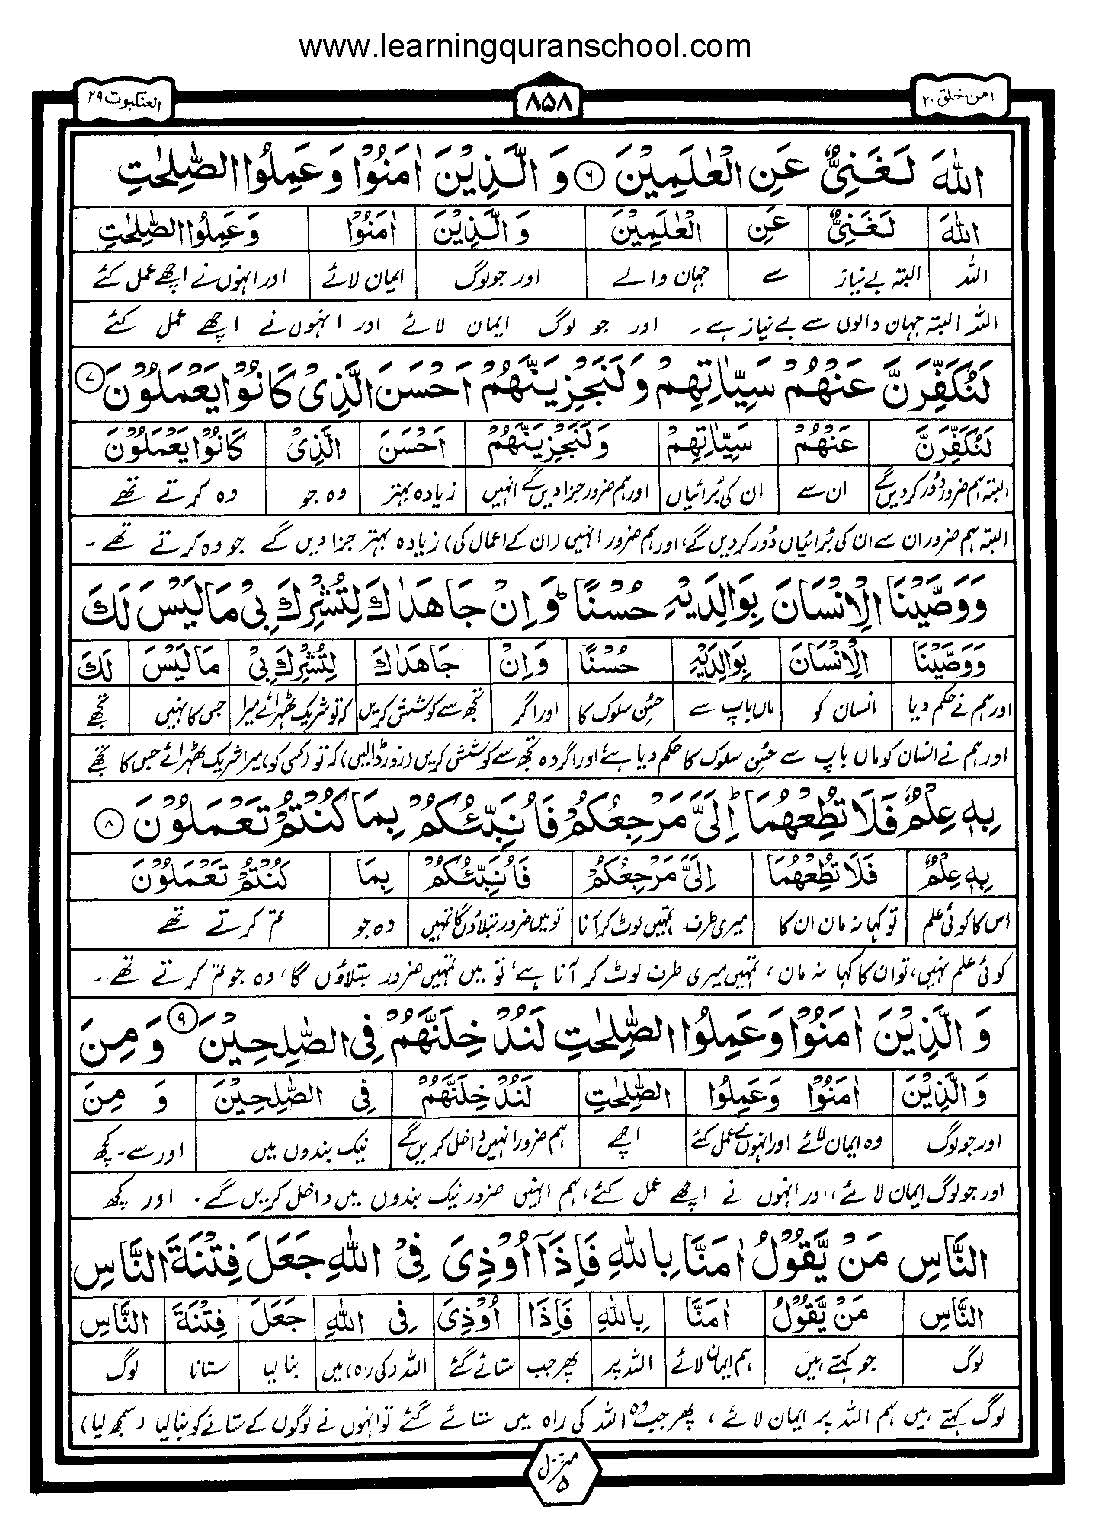 www.learningquranschool.com
امن خلق ۲۰
۸۵۸
العنکبوت ۲۹
اللّٰهَ لَغَنِیٌّ عَنِ الْعٰلَمِیْنَ ۶ وَ الَّذِیْنَ اٰمَنُوْا وَ عَمِلُوا الصّٰلِحٰتِ
اللّٰهَ لَغَنِیٌّ عَنِ الْعٰلَمِیْنَ وَ الَّذِیْنَ اٰمَنُوْا وَ عَمِلُوا الصّٰلِحٰتِ
اللہ البتہ بے نیاز سے جہان والے اور جو لوگ ایمان لائے اور انہوں نے اچھے عمل کئے
اللہ البتہ جہان والوں سے بے نیاز ہے۔ اور جو لوگ ایمان لائے اور انہوں نے اچھے عمل کئے
لَنُكَفِّرَنَّ عَنْهُمْ سَیِّاٰتِهِمْ وَلَنَجْزِیَنَّهُمْ اَحْسَنَ الَّذِیْ كَانُوْا یَعْمَلُوْنَ ۷
لَنُكَفِّرَنَّ عَنْهُمْ سَیِّاٰتِهِمْ وَلَنَجْزِیَنَّهُمْ اَحْسَنَ الَّذِیْ كَانُوْا یَعْمَلُوْنَ
البتہ ہم ضرور دُور کر دیں گے ان سے ان کی بُرائیاں اور ہم ضرور جزا دیں گے انہیں زیادہ بہتر وہ جو وہ کرتے تھے
البتہ ہم ضرور ان سے ان کی بُرائیاں دُور کر دیں گے، اور ہم ضرور انہیں (ان کے اعمال کی) زیادہ بہتر جزا دیں گے جو وہ کرتے تھے۔
وَوَصَّیْنَا الْاِنْسَانَ بِوَالِدَیْهِ حُسْنًا ؕ وَ اِنْ جَاهَدٰكَ لِتُشْرِكَ بِیْ مَا لَیْسَ لَكَ
وَوَصَّیْنَا الْاِنْسَانَ بِوَالِدَیْهِ حُسْنًا وَ اِنْ جَاهَدٰكَ لِتُشْرِكَ بِیْ مَا لَیْسَ لَكَ
اور ہم نے حکم دیا انسان کو ماں باپ سے حُسنِ سلوک کا اور اگر تجھ سے کوشش کریں کہ تو شریک ٹھہرائے میرا جس کا نہیں تجھے
اور ہم نے انسان کو ماں باپ سے حُسنِ سلوک کا حکم دیا ہے اور اگر وہ تجھ سے کوشش کریں (زور ڈالیں) کہ تو (کسی کو) میرا شریک ٹھہرائے جس کا تجھے
بِهٖ عِلْمٌ فَلَا تُطِعْهُمَا ؕ اِلَیَّ مَرْجِعُكُمْ فَاُنَبِّئُكُمْ بِمَا كُنْتُمْ تَعْمَلُوْنَ ۸
بِهٖ عِلْمٌ فَلَا تُطِعْهُمَا اِلَیَّ مَرْجِعُكُمْ فَاُنَبِّئُكُمْ بِمَا كُنْتُمْ تَعْمَلُوْنَ
اس کا کوئی علم تو کہا نہ مان ان کا میری طرف تمہیں لوٹ کر آنا تو میں ضرور بتلاؤں گا تمہیں وہ جو تم کرتے تھے
کوئی علم نہیں، تو ان کا کہا نہ مان، تمہیں میری طرف لوٹ کر آنا ہے، تو میں تمہیں ضرور بتلاؤں گا، وہ جو تم کرتے تھے۔
وَ الَّذِیْنَ اٰمَنُوْا وَ عَمِلُوا الصّٰلِحٰتِ لَنُدْخِلَنَّهُمْ فِی الصّٰلِحِیْنَ ۹ وَ مِنَ
وَ الَّذِیْنَ اٰمَنُوْا وَ عَمِلُوا الصّٰلِحٰتِ لَنُدْخِلَنَّهُمْ فِی الصّٰلِحِیْنَ وَ مِنَ
اور جو لوگ وہ ایمان لائے اور انہوں نے عمل کئے اچھے ہم ضرور انہیں داخل کریں گے نیک بندوں میں اور سے۔ کچھ
اور جو لوگ ایمان لائے، اور انہوں نے اچھے عمل کئے، ہم انہیں ضرور نیک بندوں میں داخل کریں گے۔ اور کچھ
النَّاسِ مَنْ یَّقُوْلُ اٰمَنَّا بِاللّٰهِ فَاِذَاۤ اُوْذِیَ فِی اللّٰهِ جَعَلَ فِتْنَةَ النَّاسِ
النَّاسِ مَنْ یَّقُوْلُ اٰمَنَّا بِاللّٰهِ فَاِذَا اُوْذِیَ فِی اللّٰهِ جَعَلَ فِتْنَةَ النَّاسِ
لوگ جو کہتے ہیں ہم ایمان لائے اللہ پر پھر جب ستائے گئے اللہ (کی راہ) میں بنا لیا ستانا لوگ
لوگ کہتے ہیں ہم اللہ پر ایمان لائے، پھر جب وہ اللہ کی راہ میں ستائے گئے تو انہوں نے لوگوں کے ستانے کو بنا لیا (سمجھ لیا)
منزل ۵